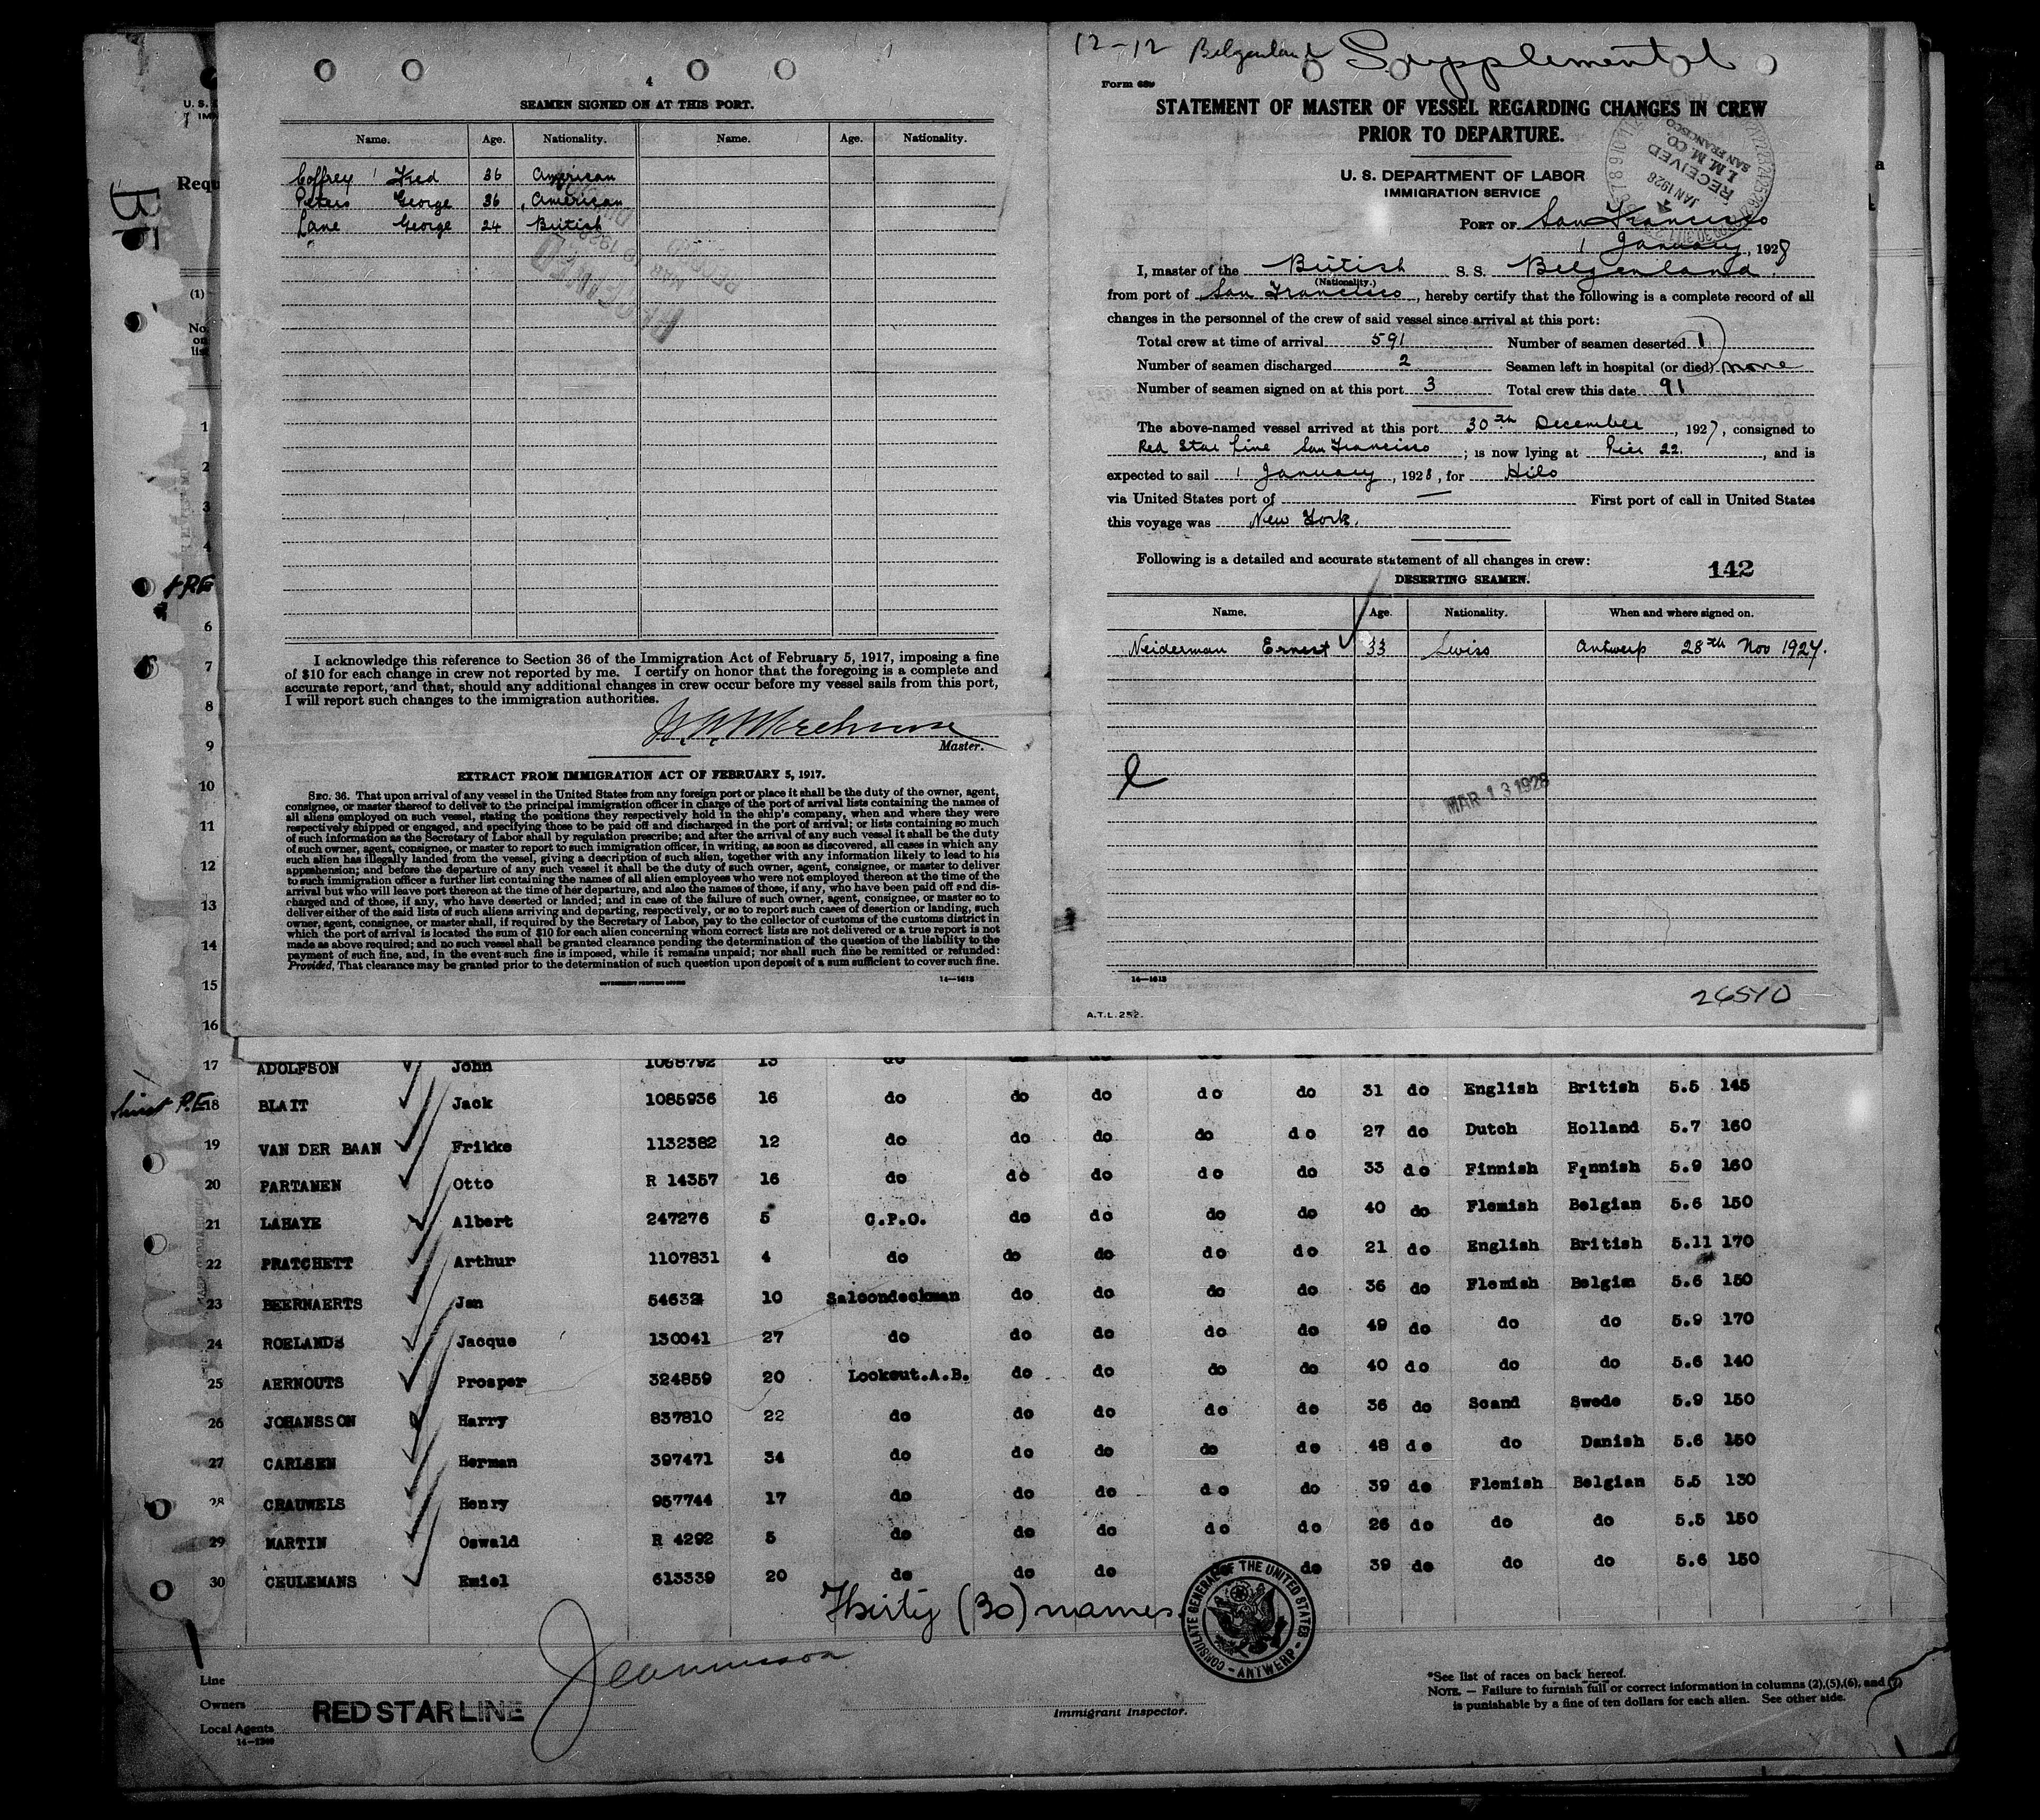 4
SEAMEN SIGNED ON AT THIS PORT.
Name. Age. Nationality. Name. Age. Nationality.
Coffrey Fred 36 American
Peters George 36 American
Lane George 24 British
I acknowledge this reference to Section 36 of the Immigration Act of February 5, 1917, imposing a fine
of $10 for each change in crew not reported by me. I certify on honor that the foregoing is a complete and
accurate report, and that, should any additional changes in crew occur before my vessel sails from this port,
I will report such changes to the immigration authorities.
Master.
EXTRACT FROM IMMIGRATION ACT OF FEBRUARY 5, 1917.
SEC. 36. That upon arrival of any vessel in the United States from any foreign port or place it shall be the duty of the owner, agent,
consignee, or master thereof to deliver to the principal immigration officer in charge of the port of arrival lists containing the names of
all aliens employed on such vessel, stating the positions they respectively hold in the ship's company, when and where they were
respectively shipped or engaged, and specifying those to be paid off and discharged in the port of arrival; or lists containing so much
of such information as the Secretary of Labor shall by regulation prescribe; and after the arrival of any such vessel it shall be the duty
of such owner, agent, consignee, or master to report to such immigration officer, in writing, as soon as discovered, all cases in which any
such alien has illegally landed from the vessel, giving a description of such alien, together with any information likely to lead to his
apprehension; and before the departure of any such vessel it shall be the duty of such owner, agent, consignee, or master to deliver
to such immigration officer a further list containing the names of all alien employees who were not employed thereon at the time of the
arrival but who will leave port thereon at the time of her departure, and also the names of those, if any, who have been paid off and dis-
charged and of those, if any, who have deserted or landed; and in case of the failure of such owner, agent, consignee, or master so to
deliver either of the said lists of such aliens arriving and departing, respectively, or so to report such cases of desertion or landing, such
owner, agent, consignee, or master shall, if required by the Secretary of Labor, pay to the collector of customs of the customs district in
which the port of arrival is located the sum of $10 for each alien concerning whom correct lists are not delivered or a true report is not
made as above required; and no such vessel shall be granted clearance pending the determination of the question of the liability to the
payment of such fine, and, in the event such fine is imposed, while it remains unpaid; nor shall such fine be remitted or refunded:
Provided, That clearance may be granted prior to the determination of such question upon deposit of a sum sufficient to cover such fine.
GOVERNMENT PRINTING OFFICE 14—1613
12-12 Belgenland Supplemental
Form 689
STATEMENT OF MASTER OF VESSEL REGARDING CHANGES IN CREW
PRIOR TO DEPARTURE.
RECEIVED
JAN 1928
I. M. M. CO.
SAN FRANCISCO
U. S. DEPARTMENT OF LABOR
IMMIGRATION SERVICE
PORT OF San Francisco
1 January, 1928
I, master of the British S. S. Belgenland
(Nationality.)
from port of San Francisco, hereby certify that the following is a complete record of all
changes in the personnel of the crew of said vessel since arrival at this port:
Total crew at time of arrival 591 Number of seamen deserted 1
Number of seamen discharged 2 Seamen left in hospital (or died) none
Number of seamen signed on at this port 3 Total crew this date 91
The above-named vessel arrived at this port 30th December, 1927, consigned to
Red Star Line San Francisco; is now lying at Pier 22, and is
expected to sail 1 January, 1928, for Hilo
via United States port of — First port of call in United States
this voyage was New York.
Following is a detailed and accurate statement of all changes in crew:
142
DESERTING SEAMEN.
Name. Age. Nationality. When and where signed on.
Neiderman Ernest 33 Swiss Antwerp 28th Nov 1927.
MAR 13 1928
14—1613
26510
A.T.L. 252.
U. S.
Requ
(1)
No.
on
list
1
2
3
4
6
7
8
9
10
11
12
13
14
15
16
17 ADOLFSON John 1068792 13 do
18 BLAIT Jack 1085936 16 do do do do do 31 do English British 5.5 145
19 VAN DER BAAN Frikke 1132382 12 do do do do do 27 do Dutch Holland 5.7 160
20 PARTANEN Otto R 14357 16 do do do do do 33 do Finnish Finnish 5.9 160
21 LAHAYE Albert 247276 5 C.P.O. do do do do 40 do Flemish Belgian 5.6 150
22 PRATCHETT Arthur 1107831 4 do do do do do 21 do English British 5.11 170
23 BEERNAERTS Jan 54632 10 Saloondeckman do do do do 36 do Flemish Belgian 5.6 150
24 ROELANDS Jacque 130041 27 do do do do do 49 do do do 5.9 170
25 AERNOUTS Prosper 324859 20 Lookout.A.B. do do do do 40 do do do 5.6 140
26 JOHANSSON Harry 837810 22 do do do do do 36 do Scand Swede 5.9 150
27 CARLSEN Herman 397471 34 do do do do do 48 do do Danish 5.6 150
28 CRAUWELS Henry 957744 17 do do do do do 39 do Flemish Belgian 5.5 130
29 MARTIN Oswald R 4292 5 do do do do do 26 do do do 5.5 150
30 CEULEMANS Emiel 613339 20 do do do do 39 do do do 5.6 150
Thirty (30) names
CONSULATE GENERAL OF THE UNITED STATES - ANTWERP -
Line
Owners
RED STAR LINE
Local Agents
Immigrant Inspector.
*See list of races on back hereof.
NOTE. — Failure to furnish full or correct information in columns (2),(5),(6), and (7)
is punishable by a fine of ten dollars for each alien. See other side.